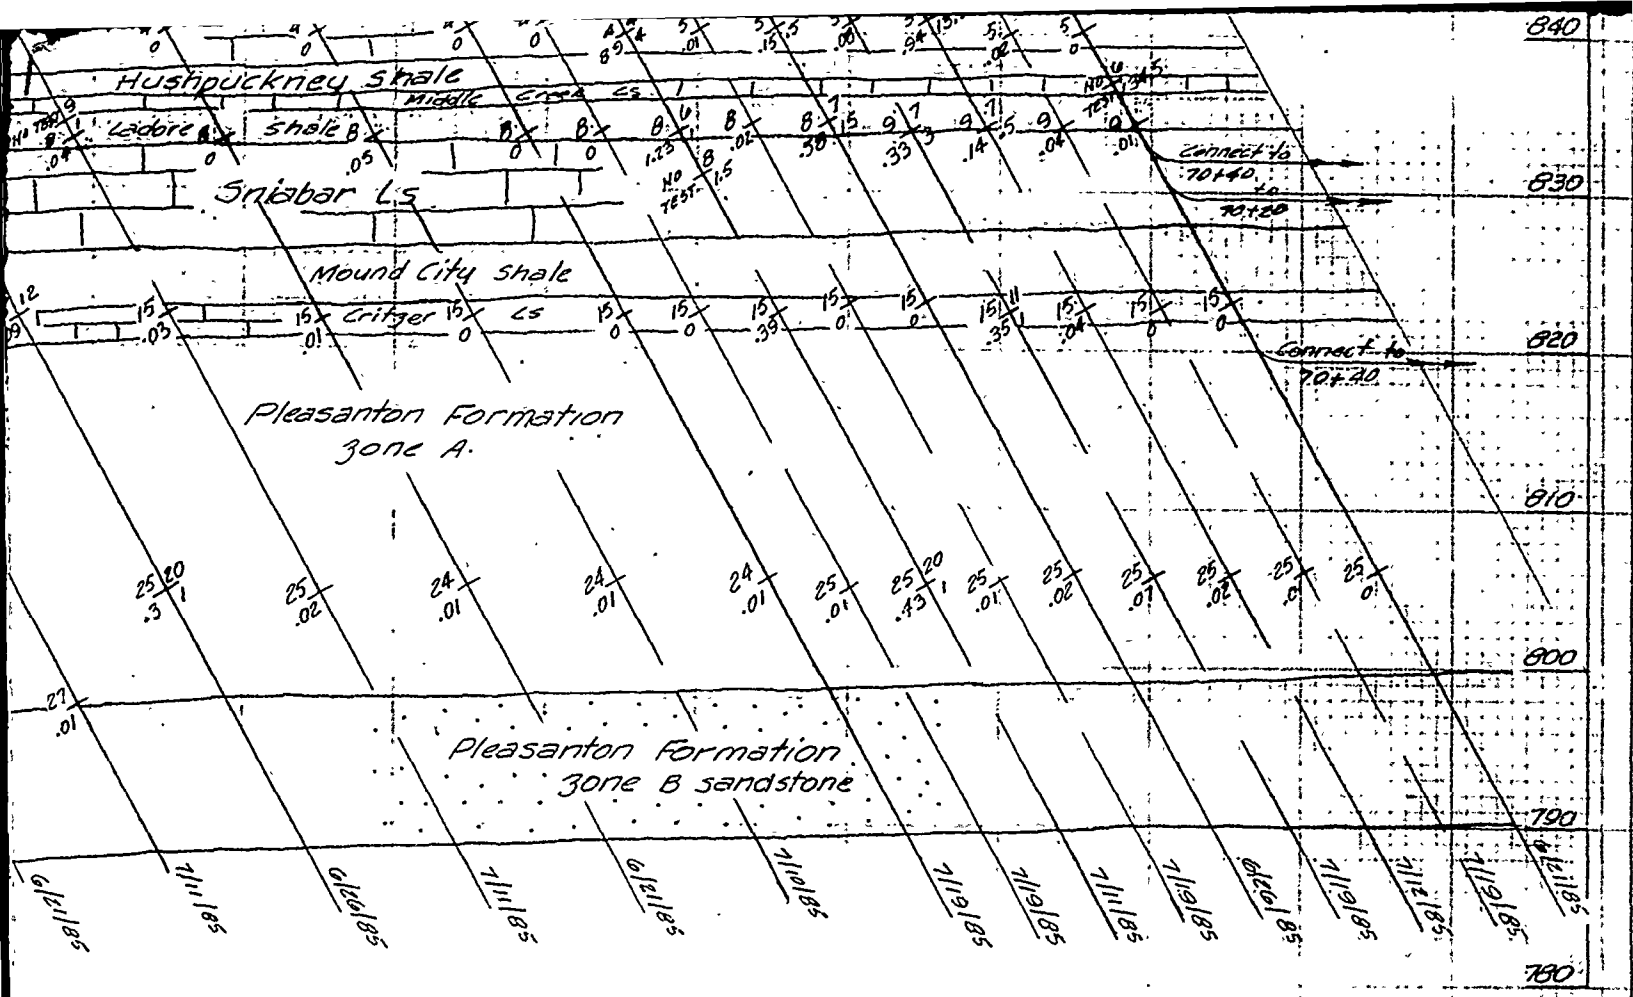 840
0
0
0
0
.01
.15
0
Hushpuckney Shale
Middle Creek Ls
NO TEST
NO TEST
Ladore Shale
8
0
8
.05
8
0
8
0
8
1.23
8
.02
8
.38
9
.33
9
.14
9
.04
9
.01
Connect to
70+40
to
70+20
830
Sniabar Ls
NO
TEST
8
1.5
Mound City Shale
12
15
.03
15
.01
Critzer Ls
15
0
15
0
15
0
15
.39
15
0
15
0
15
.35
11
1
15
.04
15
0
15
0
820
Connect to
70+40
Pleasanton Formation
Zone A.
810
25
.3
20
1
25
.02
24
.01
24
.01
24
.01
25
.01
25
.43
20
1
25
.01
25
.02
25
.01
25
.02
25
.0
25
0
800
27
.01
Pleasanton Formation
Zone B sandstone
790
6/21/85
7/11/85
6/26/85
7/11/85
6/21/85
7/10/85
7/19/85
7/19/85
7/11/85
7/19/85
6/26/85
7/19/85
7/12/85
7/19/85
6/21/85
780